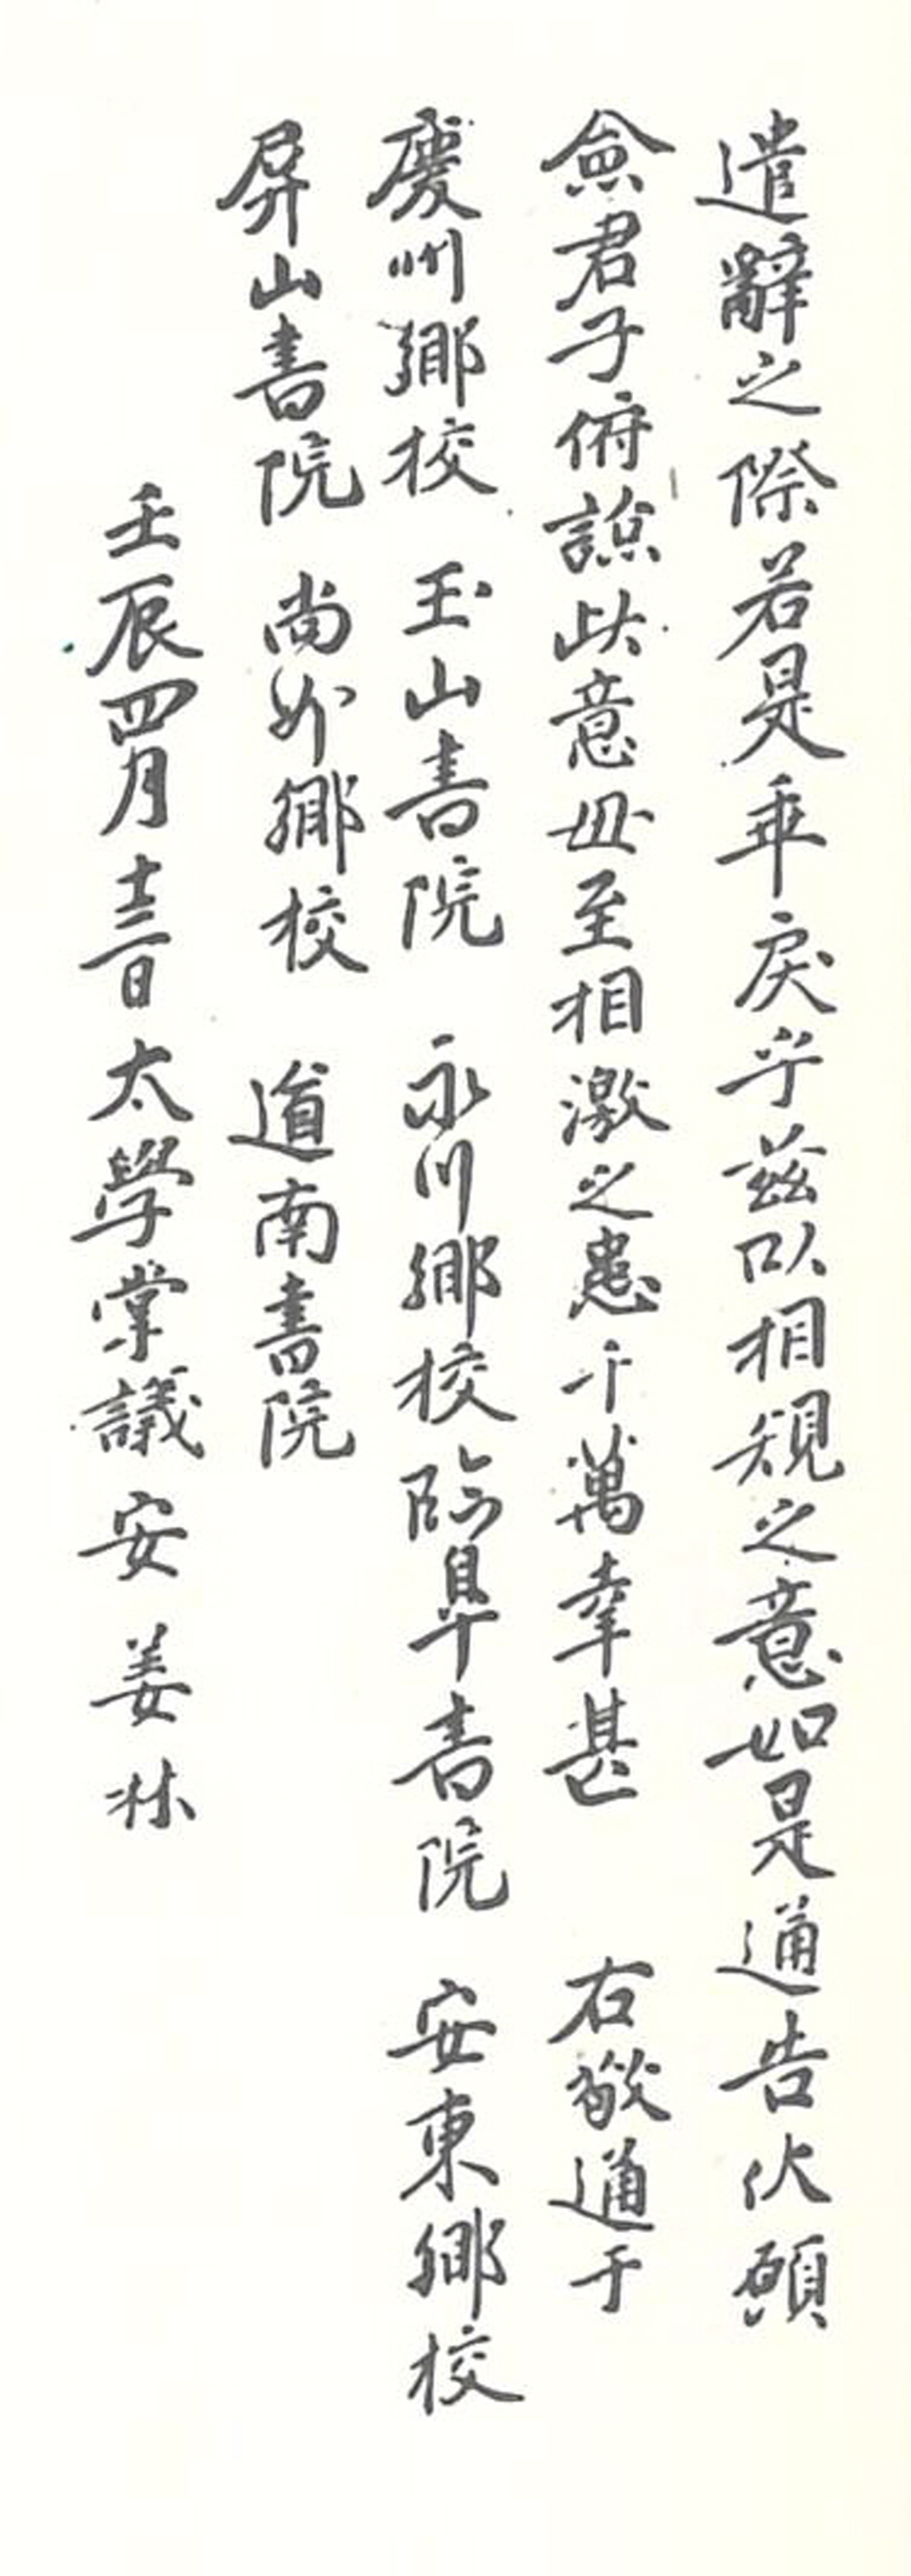 遣辭之際若是乖戾乎玆以相規之意如是通告伏願
僉君子俯諒此意毋至相激之患千萬幸甚 右敬通于
慶州鄕校 玉山書院 永川鄕校 臨皐書院 安東鄕校
屛山書院 尙州鄕校 道南書院
壬辰四月十二日 太學掌議 安 姜 林